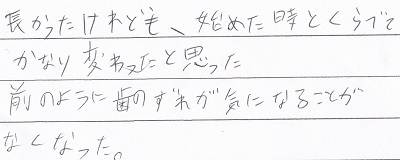 長かったけれども、始めた時とくらべて
かなり変わったと思った
前のように歯のずれが気になることが
なくなった。